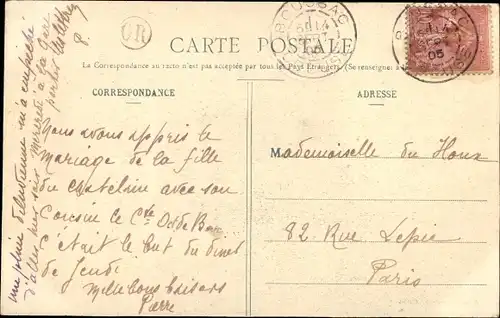 BOUSSAC
OR
CARTE POSTALE
La Correspondance au recto n'est pas acceptée par tous les Pays Etrangers. (Se renseigner à
CORRESPONDANCE
ADRESSE
Nous avons appris le
mariage de la fille
du chatelain avec son
cousin le Cte
c'était le but du diner
de Jeudi
Mille bons baisers
Pierre
Mademoiselle du Houx
82 Rue Lepic
Paris
une pluie m'a empêché
d'aller à la gare